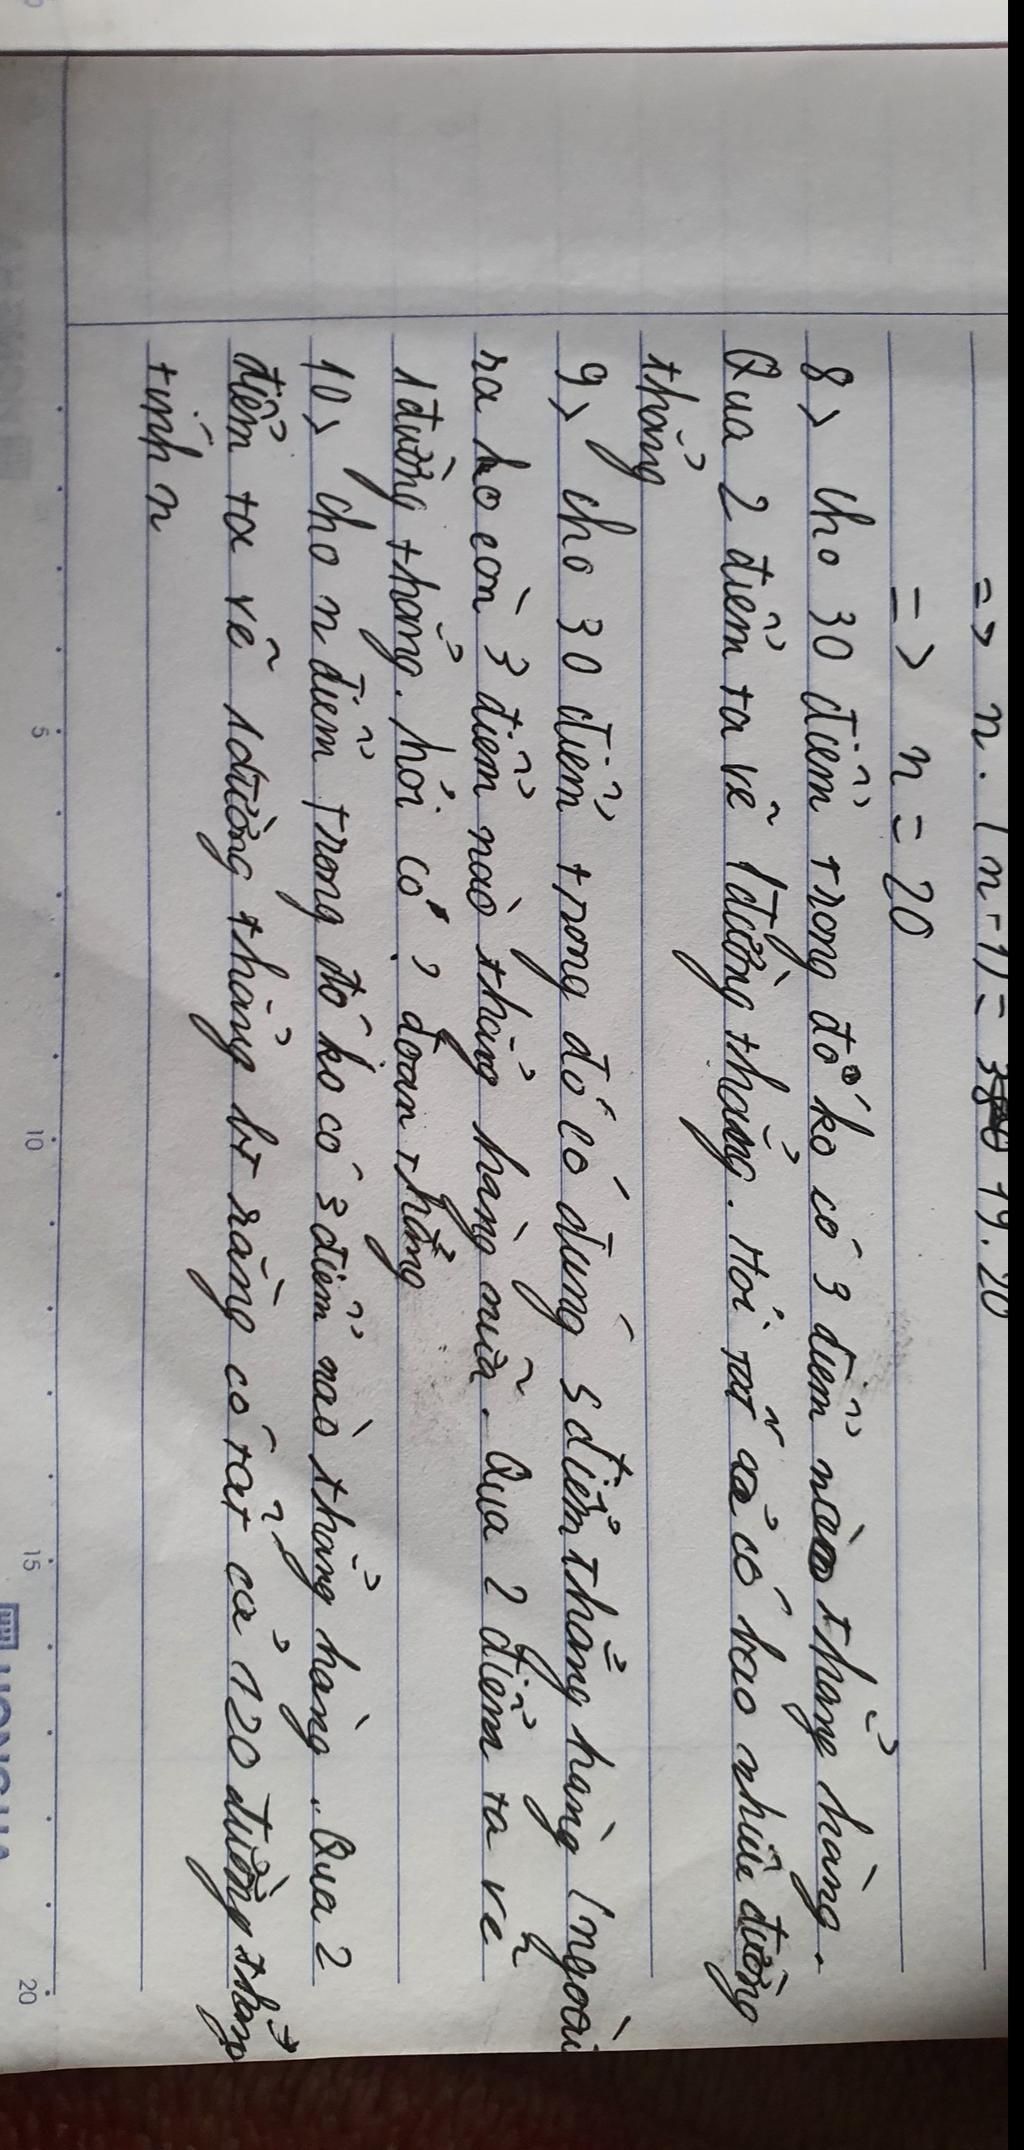 => n. (n-1) = 19.20
=> n = 20
8> cho 30 điểm trong đó ko có 3 điểm nào thẳng hàng.
Qua 2 điểm ta vẽ 1 đường thẳng. Hỏi tất cả có bao nhiêu đường
thẳng
9> cho 30 điểm trong đó có đúng 3 điểm thẳng hàng (ngoài
ra ko còn 3 điểm nào thẳng hàng nữa. Qua 2 điểm ta vẽ
1 đường thẳng. hỏi có ? đoạn thẳng
10> cho n điểm trong đó ko có 3 điểm nào thẳng hàng. Qua 2
điểm ta vẽ 1 đường thẳng bt rằng có tất cả 120 đường thẳng
tính n
5 10 15 20